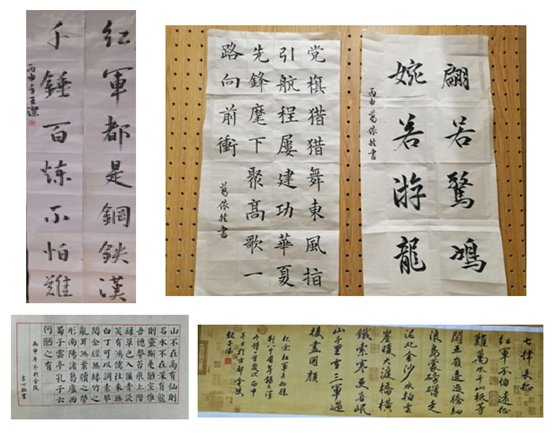 紅軍都是鋼鐵漢
千錘百炼不怕難
党旗猎猎舞東風指
引航程屡建功華夏
先鋒麾下聚髙歌一
路向前衝
翩若驚鴻
婉若游龍
丙申葛依
山不在高有仙則
名水不在深有龍
則靈斯是陋室惟
吾德馨苔痕上階
綠草色入簾青談
笑有鴻儒往来無
白丁可以調素琴
閱金經無絲竹之
亂耳無案牘之勞
形南陽諸葛廬西
蜀子雲亭孔子云
何陋之有
丙申年冬於金陵
七律長征
紅軍不怕遠征
難萬水千山只等
閒五嶺逶迤騰細
浪烏蒙磅礴走
泥丸金沙水拍雲
崖暖大渡橋横
鐵索寒更喜岷
山千里雪三軍過
後盡開顔